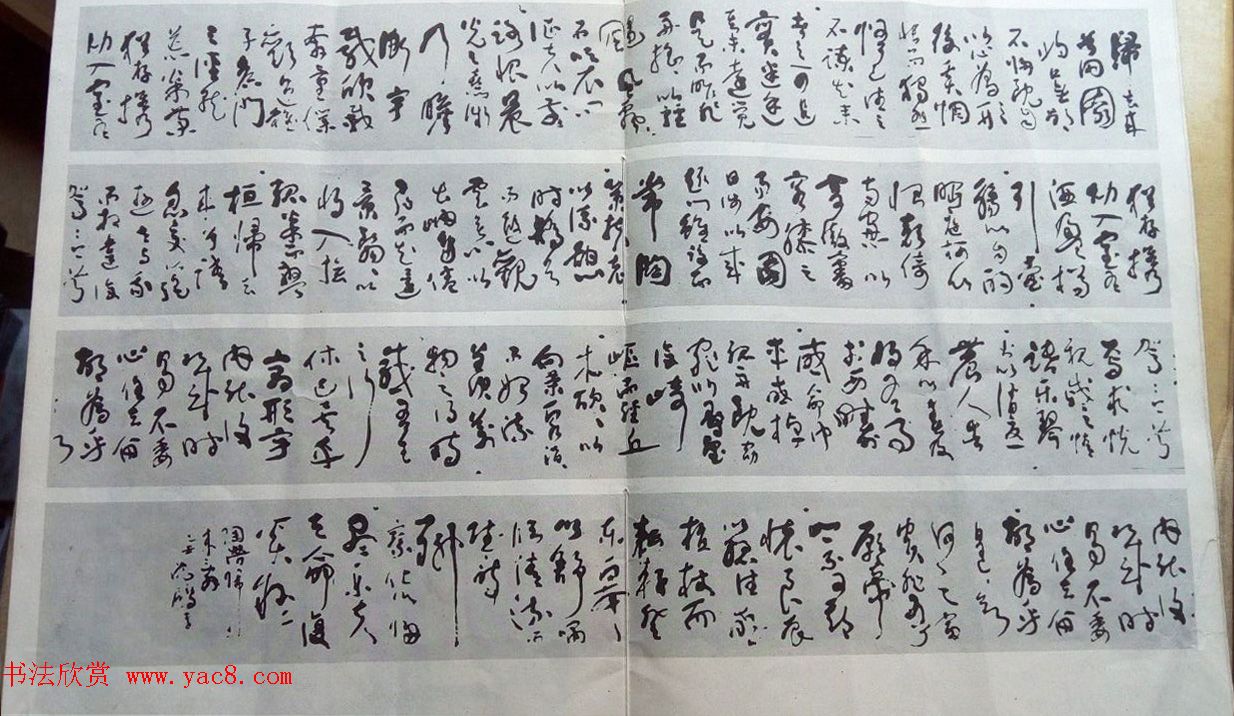 歸去來
兮田園
將蕪胡
不歸既自
以心為形
役奚惆
悵而獨悲
悟已往之
不諫知來
者之可追
實迷途
其未遠覺
今是而昨非
舟遙遙以輕
颺風飄
飄而吹衣
問征夫以前
路恨晨
光之熹微
乃瞻
衡宇
載欣載
奔僮僕
歡迎稚
子候門
三徑就
荒松菊
猶存攜
幼入室有
猶存攜
幼入室有
酒盈樽
引壺
觴以自酌
眄庭柯以
怡顏倚
南窗以
寄傲審
容膝之
易安園
日涉以成
趣門雖設而
常關
策扶老
以流憩
時矯首
而遐觀
雲無心以
出岫鳥倦
飛而知還
景翳翳以
將入撫
孤松而盤
桓歸去
來兮請
息交以絕
遊世與我
而相違復
駕言兮
駕言兮
焉求悅
親戚之情
話樂琴
書以消憂
農人告
余以春及
將有事
於西疇
或命巾
車或棹
孤舟既窈
窕以尋壑
亦崎
嶇而經丘
木欣欣以
向榮泉涓
涓而始流
善萬
物之得時
感吾生
之行
休已矣乎
寓形宇
內復
幾時
曷不委
心任去留
胡為乎
內復
幾時
曷不委
心任去留
胡為乎
遑遑欲
何之富
貴非吾
願帝
鄉不可期
懷良辰
以孤往或
植杖而
耘耔登
東皋
以舒嘯
臨清流而
賦詩
聊
乘化以歸
盡樂夫
天命復
奚疑
書法欣赏 www.yac8.com